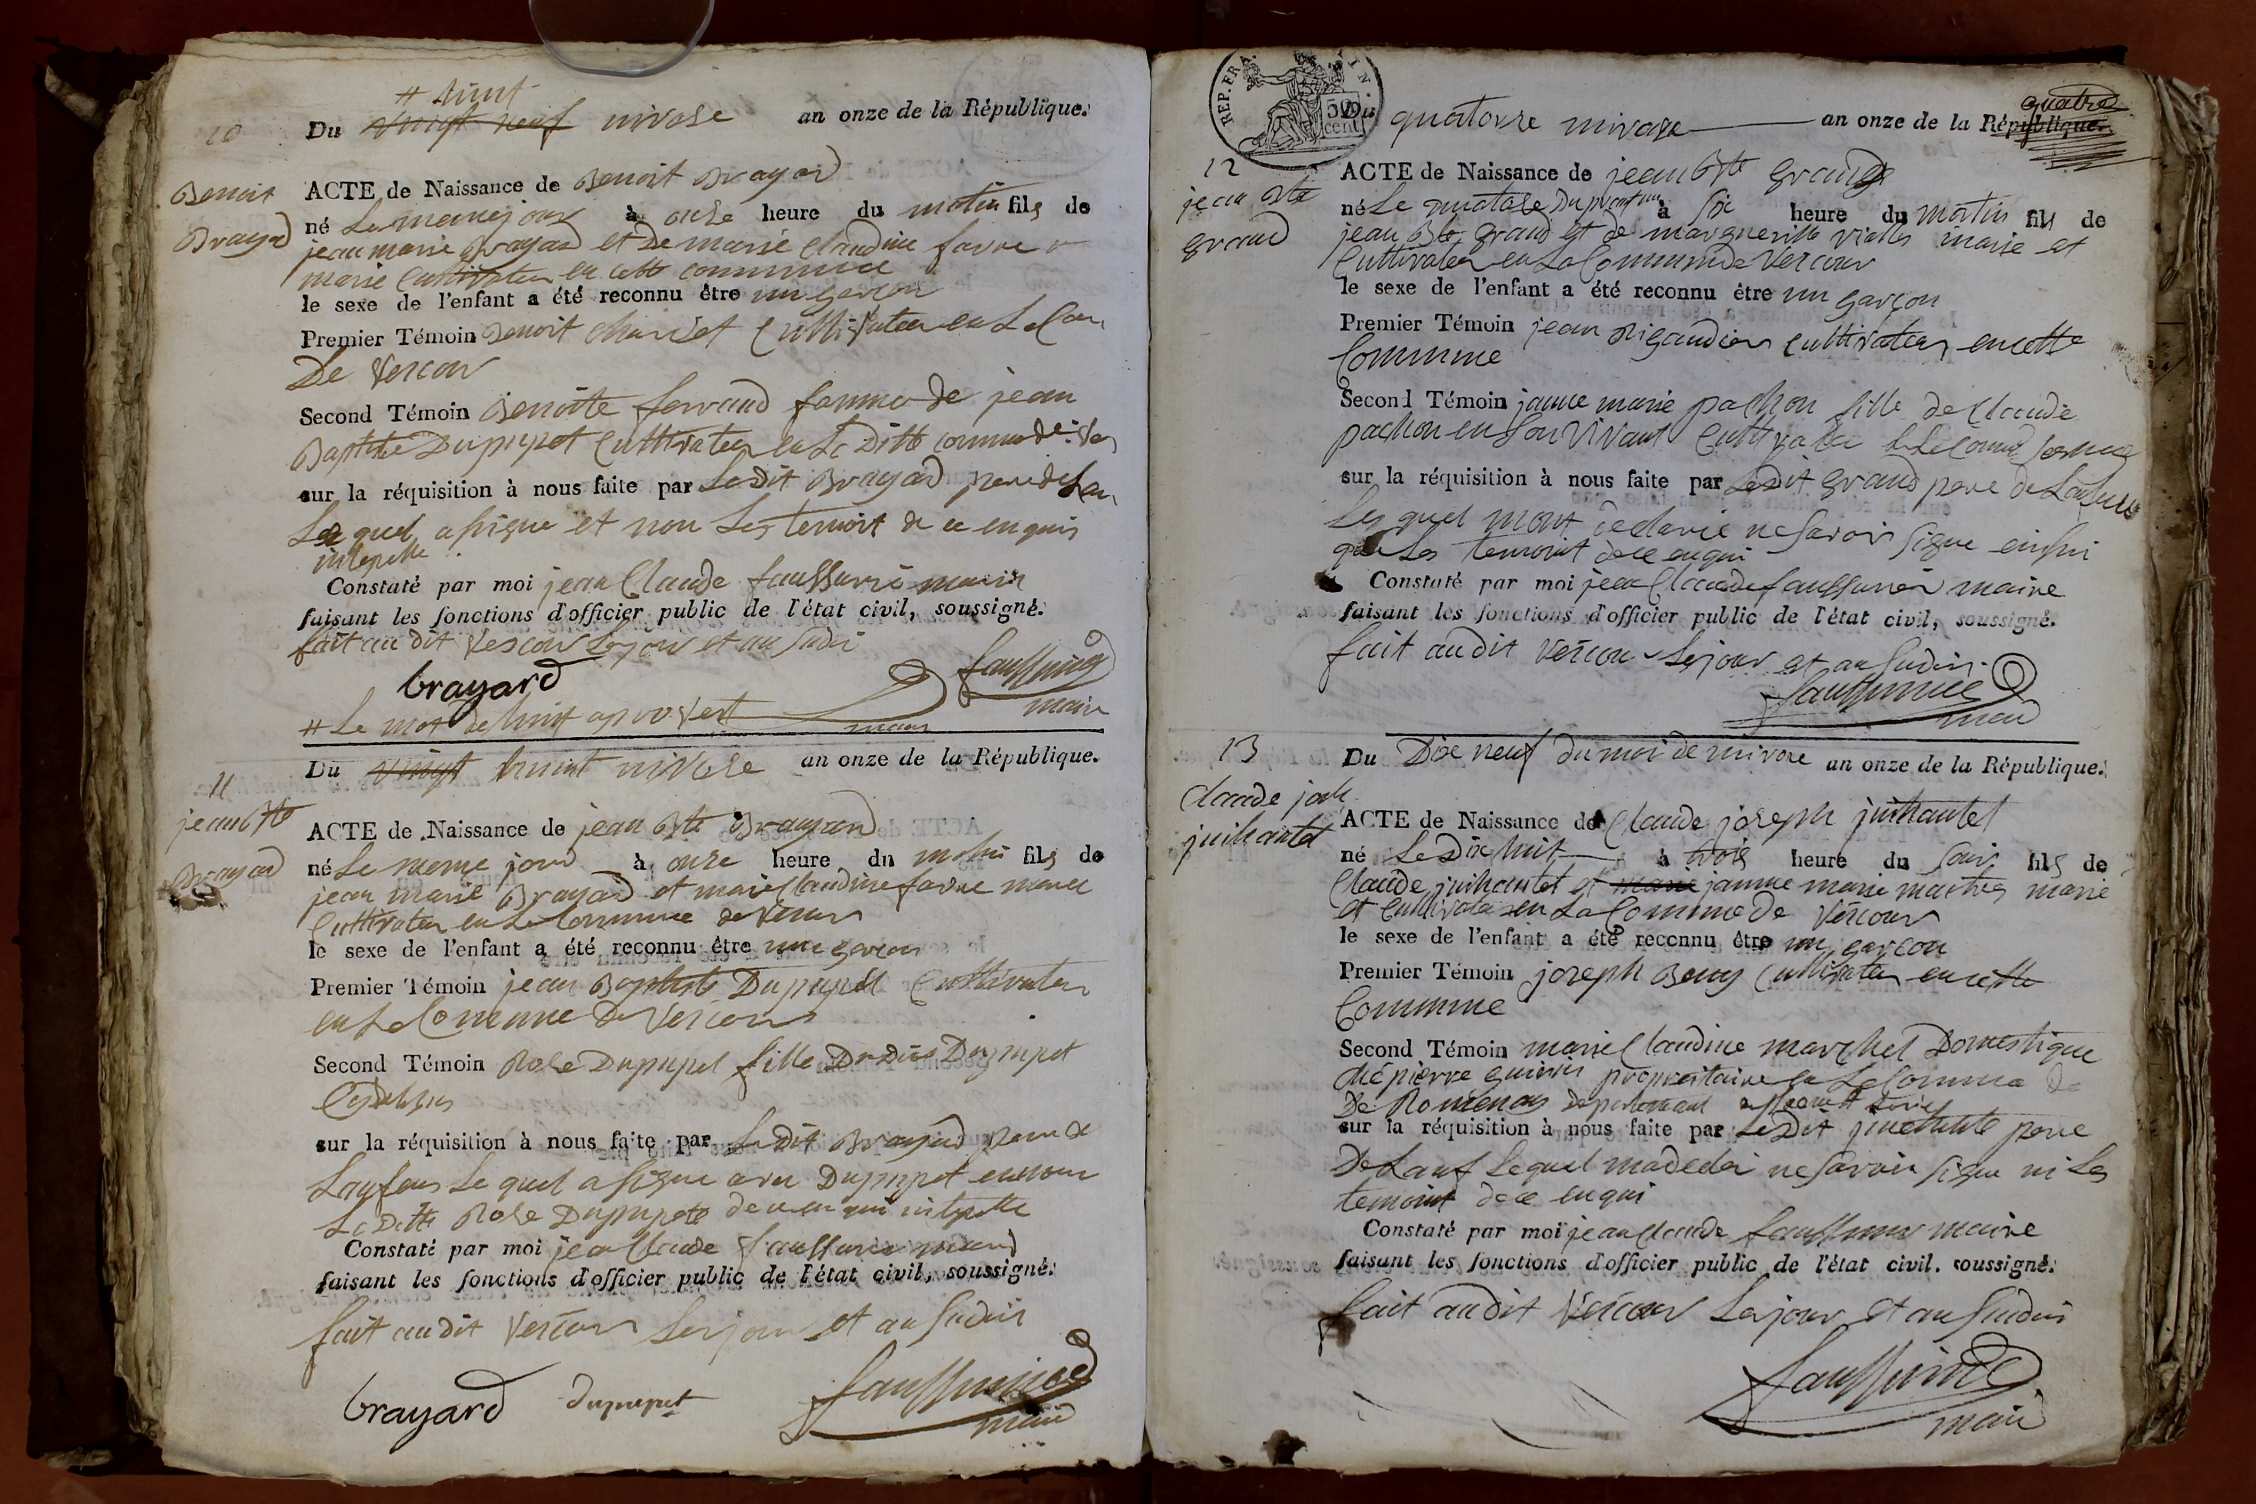 # huit
10
Du vingt neuf nivose an onze de la République.
Benoit
Brayard
ACTE de Naissance de Benoit Brayard
né Le meme jour à onze heure du matin fils de
jean marie Brayard et De marie Claudine favre
marié Cultivateur en cette commune
le sexe de l'enfant a été reconnu être un garcon
Premier Témoin Benoit Cultivateur en La Com
De Vercour
Second Témoin Benoitte ferrand famme de jean
Baptiste Dupupet Cultivateur en La Ditte commune de Ver
sur la réquisition à nous faite par Ledit Brayard pere de Lan
Le quel a signe et non Les temoint de ce enquis
intepelle
Constaté par moi jean Claude faussurié maire
faisant les fonctions d'officier public de l'état civil, soussigné.
fait au dit Vercour Le jour et an sudi
brayard
maire
# Le mot de huit aprouvert
maire
11
Du vingt huit nivose an onze de la République.
jean Bte
Brayard
ACTE de Naissance de jean Bte Brayard
né Le meme jour à onze heure du matin fils de
jean marie Brayard et marie Claudine favre marié
Cultivateur en La Commune de Vercour
le sexe de l'enfant a été reconnu être un garcon
Premier Témoin jean Baptiste Dupupet Cultivateur
en La Commune De Vercour
Second Témoin Rose Dupupet fille Dudit Dupupet
Cydessus
sur la réquisition à nous faite par Le dit Brayard pere de
Le quel a signe avec Dupupet et non
La Ditte Rose Dupupet de ce enqui intepelle
Constaté par moi jean Claude faussurié maire
faisant les fonctions d'officier public de l'état civil, soussigné.
fait au dit Vercour Le jour et an sudis
brayard dupupet
maire
REP. FRA.
50 cent
quatre
Du quatorze nivose an onze de la République.
12
jean Bte
grand
ACTE de Naissance de jean Bte grand
né Le quatorze Du present mois à Six heure du matin fils de
jean Bte grand et de margueritte viallet marié et
Cultivateur en La Commune de Vercour
le sexe de l'enfant a été reconnu être un garçon
Premier Témoin jean Rigaudier Cultivateur en cette
Commune
Second Témoin janne marie pachon fille de Claude
pachon en son vivant Cultivateur
sur la réquisition à nous faite par Ledit grand pere de
Les quel mont declarie ne savoir signe einssi
que Les temoint dece enqui
Constaté par moi jean Claude faussurier maire
faisant les fonctions d'officier public de l'état civil, soussigné.
fait au dit Vercour Le jour et an sudis
maire
13
Du Dix neuf du moi de nivose an onze de la République.
Claude jos
juihantet
ACTE de Naissance de Claude joseph juihantet
né Le Dix huit à trois heure du soir fils de
Claude juihantet et marie janne marie maitres marié
et Cultivateur en La Commune De Vercour
le sexe de l'enfant a été reconnu être un garcon
Premier Témoin joseph Cultivateur en cette
Commune
Second Témoin marie Claudine marchel Domestique
ché pierre guirin propriaitaire en La Commune de
De Romenay departement
sur la réquisition à nous faite par Ledit pere
De Lanf Lequel ma dedei ne savoir signe ni Les
temoint de ce enqui
Constaté par moi jean Claude faussurier maire
faisant les fonctions d'officier public de l'état civil. soussigné.
fait au dit Vercour Le jour et an sudis
maire